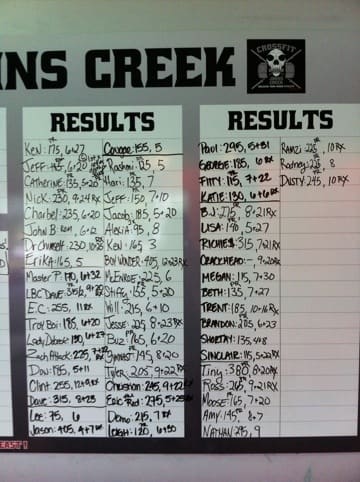 NS CREEK
CROSSFIT
CREEK
RESULTS
Ken: 175, 6+27
Jeff: 165, 6+20
Catherine: 135, 5+20
Nick: 230, 9+24 RX
Charbel: 235, 6+20
John B:
Dr Chuckell: 230,
Erika: 165, 5
Master P: 170, 6+32
LBC Dave: 315,
E.C.: 255, 11 RX
Troy Boi: 185, 6+20
Lady Detroit: 130, 6+27
Zach Attack: 225,
Don: 185, 5+11
Clint: 255, 12+9 RX
Dave: 315, 8+23
Lee: 75, 6
Jason: 405, 4+7 RX
155, 5
Rashmi: 125, 5
Hari: 135, 7
Jeff: 150, 7+10
Jacob: 185, 5+20
Alexia: 95, 8
Ken: 165, 3
Boy Wonder: 405, 12+23 RX
McEnroe: 225, 6
Stiffy: 155, 5+20
Will: 215, 6+10
Jesse: 225, 8+23 RX
Buz: 165, 6+20
Gymnast: 195, 8+20
Tyler: 205, 9+22 RX
Christian: 245, 9+22 RX
Eric Red: 275, 5+25 RX
Demo: 215, 7 RX
Leigh: 120, 6+30
RESULTS
Paul: 295, 5+31
George: 185, 6 RX
Fitty: 115, 7+22
Katie: 130, 6+6 RX
BJ: 275, 8+21 RX
Lisa: 190, 5+27
Richie $: 315, 7+21 RX
Crackhead: 9+20 RX
Megan: 115, 7+30
Beth: 135, 7+27
Trent: 185, 10+16 RX
Brandon: 205, 6+23
Shorty: 135, 4+8
Sinclair: 115, 5+22 RX
Tiny: 380, 8+20 RX
Ross: 265, 9+21 RX
Moose: 165, 7+20
Amy: 145, 8+7
Nathan: 295, 9
Ramzi: 225, 10 RX
Rodney: 225, 8
Dusty: 245, 10 RX
EAST!